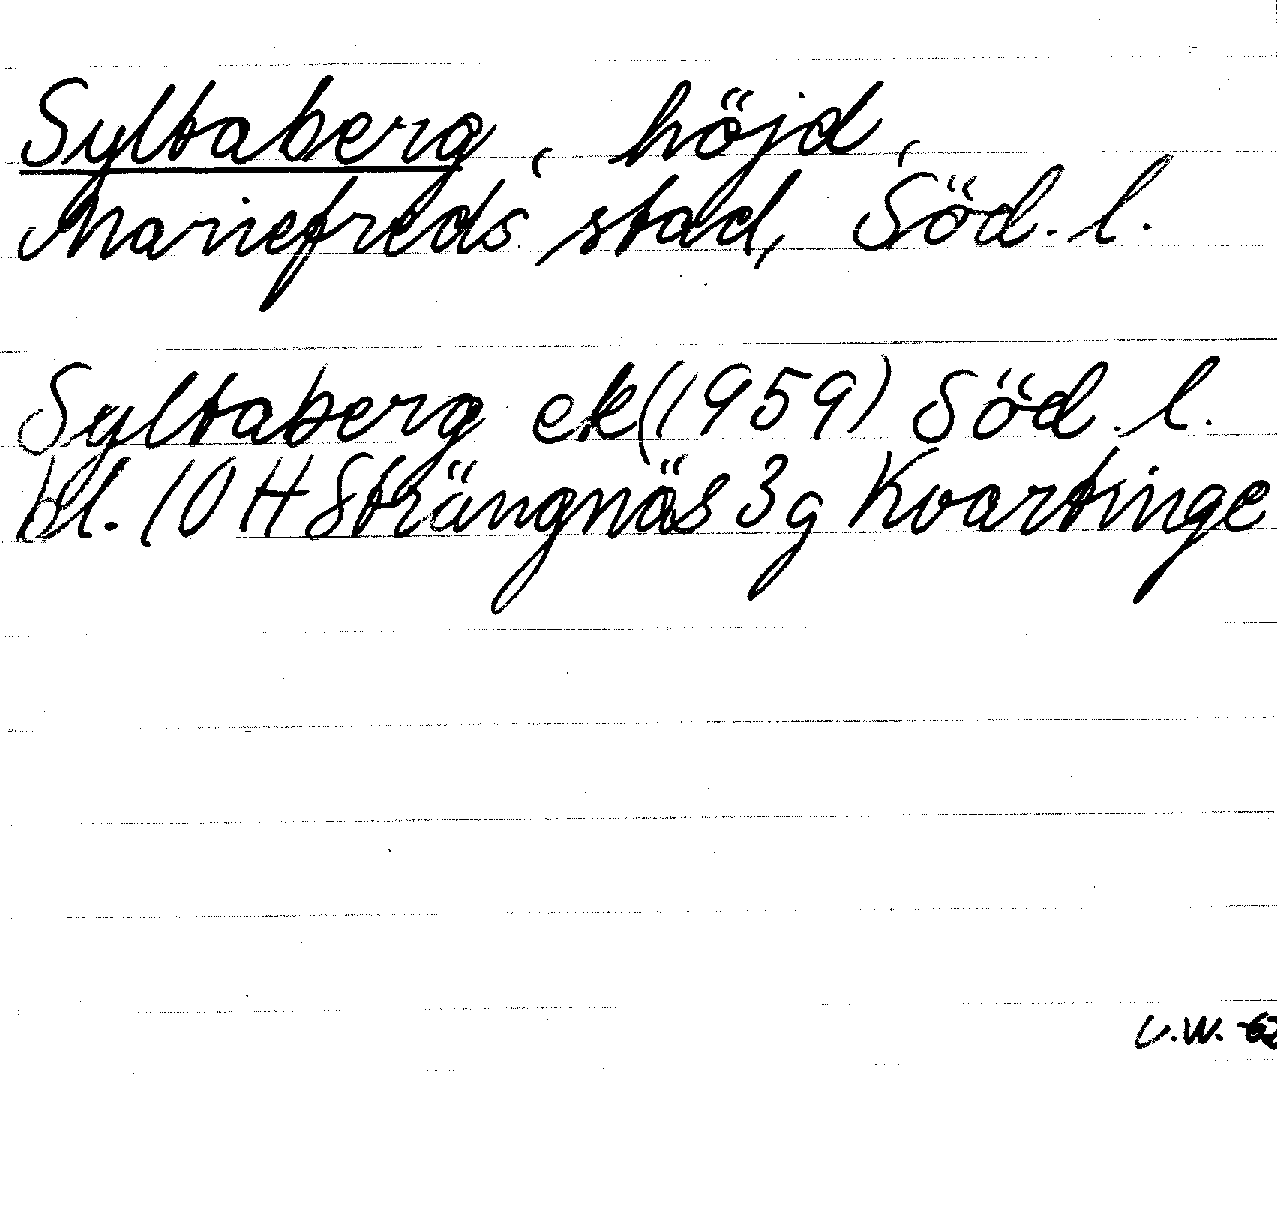 Syltaberg, höjd,
Mariefreds stad, Söd. l.
Syltaberg ek (1959) Söd. l.
bl. 10 H Strängnäs 3 g Kvartinge